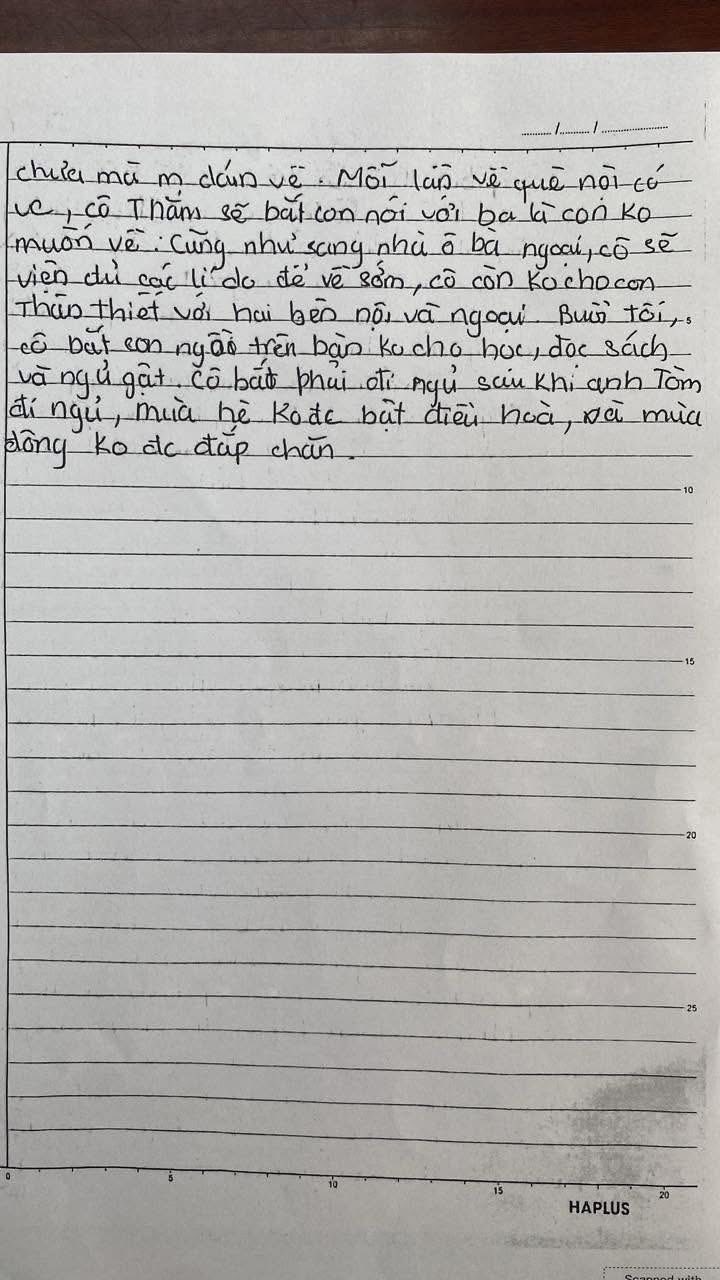 ............/............/......................
chưa mà m dám về. Mỗi lần về quê nội có
vc, cô Thắm sẽ bắt con nói với ba là con ko
muốn về. Cũng như sang nhà ô bà ngoại, cô sẽ
viện đủ các lí do để về sớm, cô còn ko cho con
Thân thiết với hai bên nội và ngoại. Buổi tối,
cô bắt con ngồi trên bàn ko cho học, đọc sách
và ngủ gật. Cô bắt phải đi ngủ sau khi anh Tôm
đi ngủ, mùa hè ko đc bật điều hoà, và mùa
đông ko đc đắp chăn.
10
15
20
25
0 5 10 15 20
HAPLUS
Scanned with